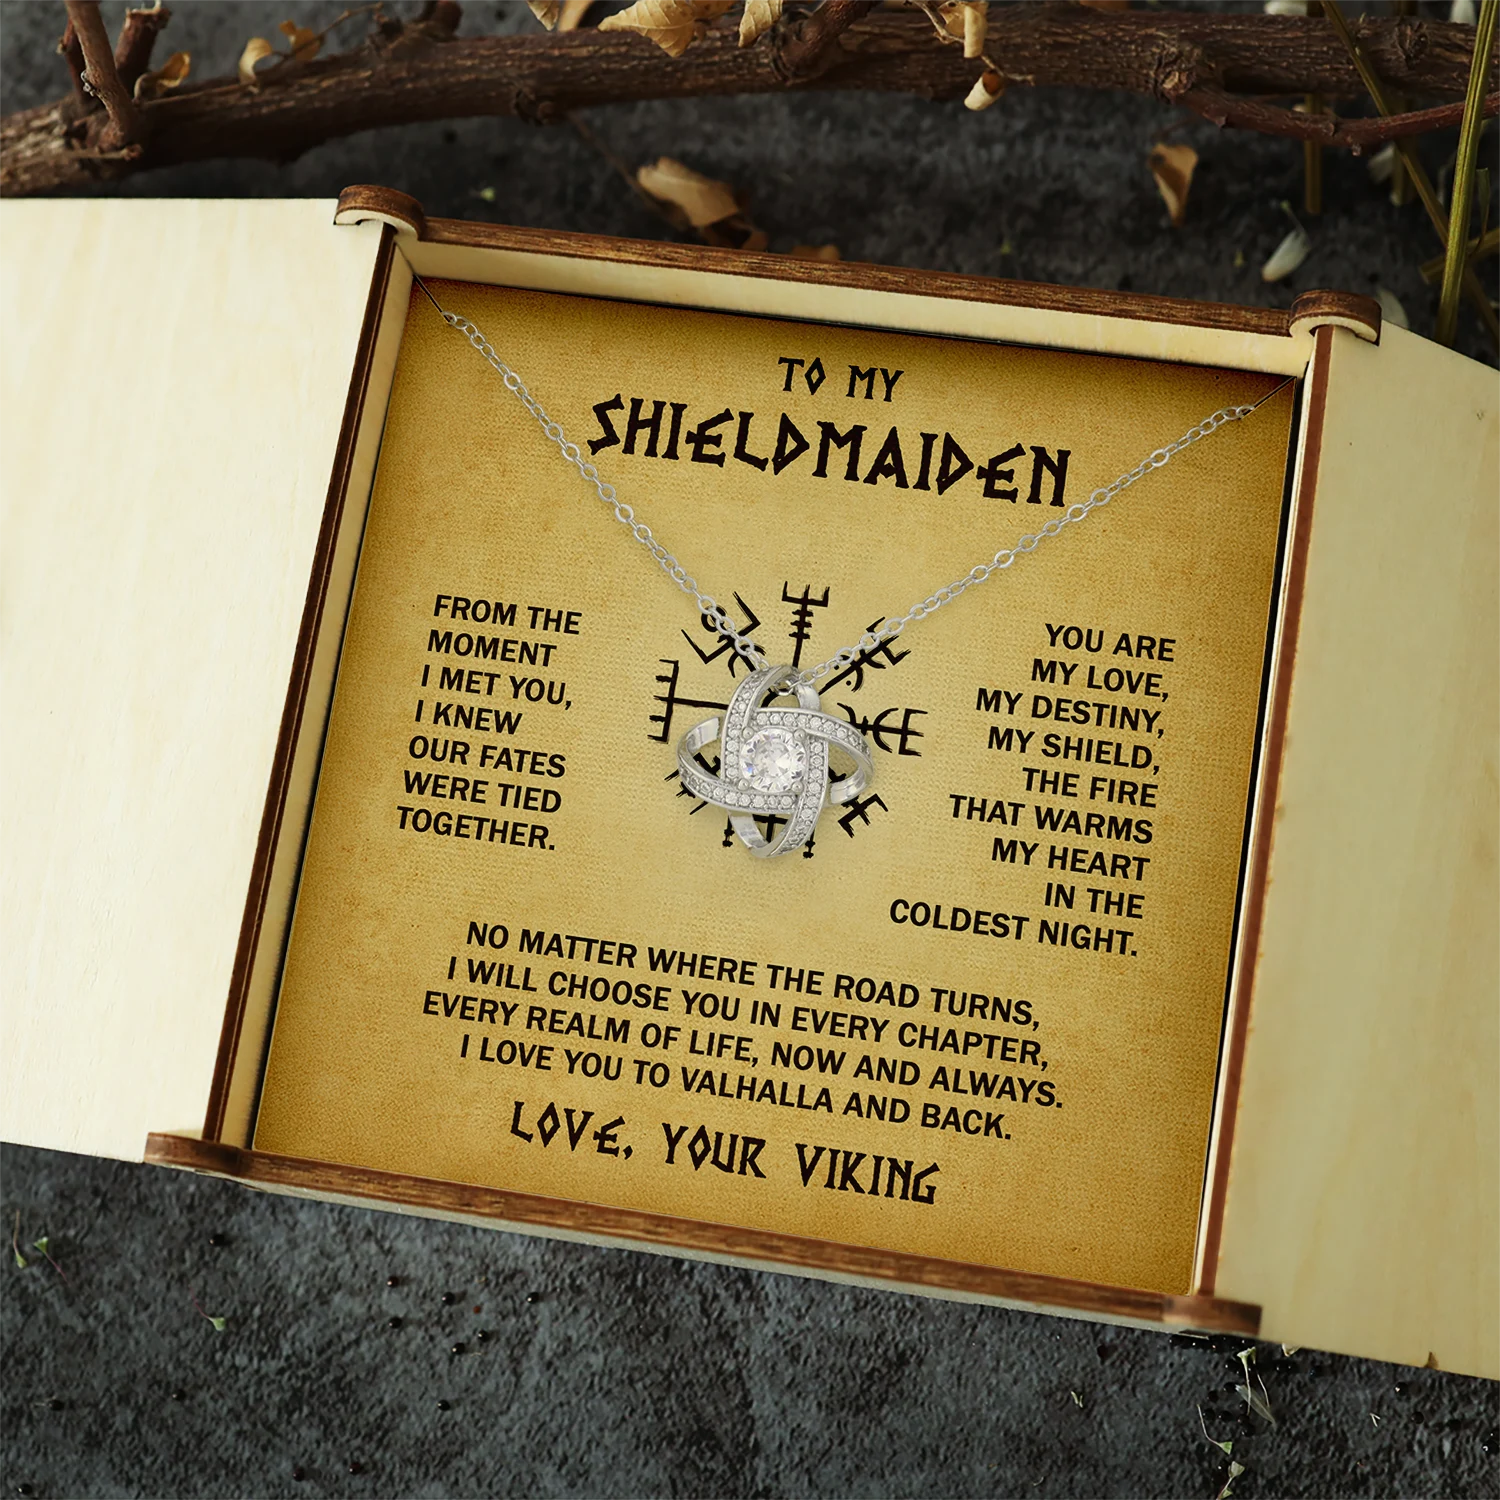 TO MY
SHIELDMAIDEN
FROM THE
MOMENT
I MET YOU,
I KNEW
OUR FATES
WERE TIED
TOGETHER.
YOU ARE
MY LOVE,
MY DESTINY,
MY SHIELD,
THE FIRE
THAT WARMS
MY HEART
IN THE
COLDEST NIGHT.
NO MATTER WHERE THE ROAD TURNS,
I WILL CHOOSE YOU IN EVERY CHAPTER,
EVERY REALM OF LIFE, NOW AND ALWAYS.
I LOVE YOU TO VALHALLA AND BACK.
LOVE, YOUR VIKING